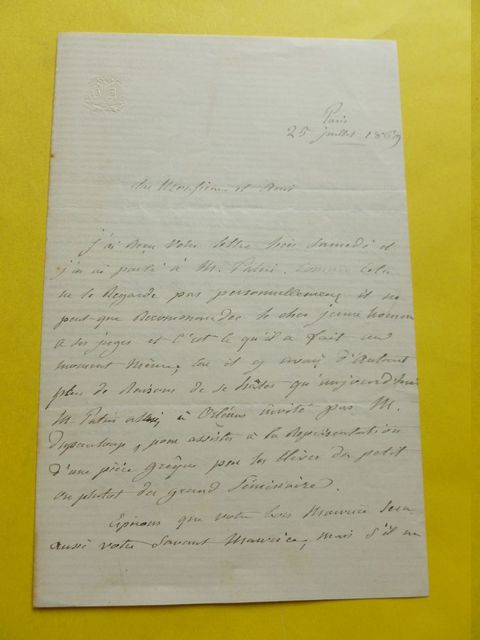 Paris
25 juillet 1869
Monsieur et Ami
J'ai reçu votre lettre hier Samedi et
j'en ai parlé à M. Patin. Comme Cela
ne le Regarde pas personnellement, il ne
peut que Recommander le cher jeune homme
à ses juges et C'est ce qu'il a fait au
moment même, car il y avait d'Autant
plus de Raisons de se hâter qu'aujourd'hui
M. Patin à Orléans invité par M.
Dupanloup, pour assister à la Représentation
d'une pièce grecque par les Elèves du petit
ou plutôt du grand Séminaire.
Espérons que votre bon Maurice sera
aussi votre Savant Maurice, mais s'il